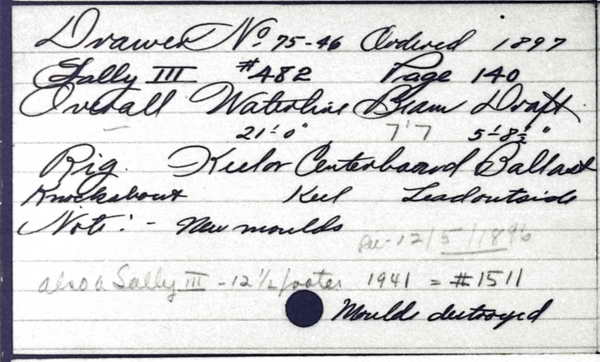 Drawer No 75-46 Ordered 1897
Sally III #482 Page 140
Overall Waterline Beam Draft
- 21'-0" 7'7 5'-8½"
Rig. Keel or Centerboard Ballast
Knockabout Keel Lead outside
Note:- New moulds
12/5/1896
also a Sally III - 12½ footer 1941 = #1511
Moulds destroyed